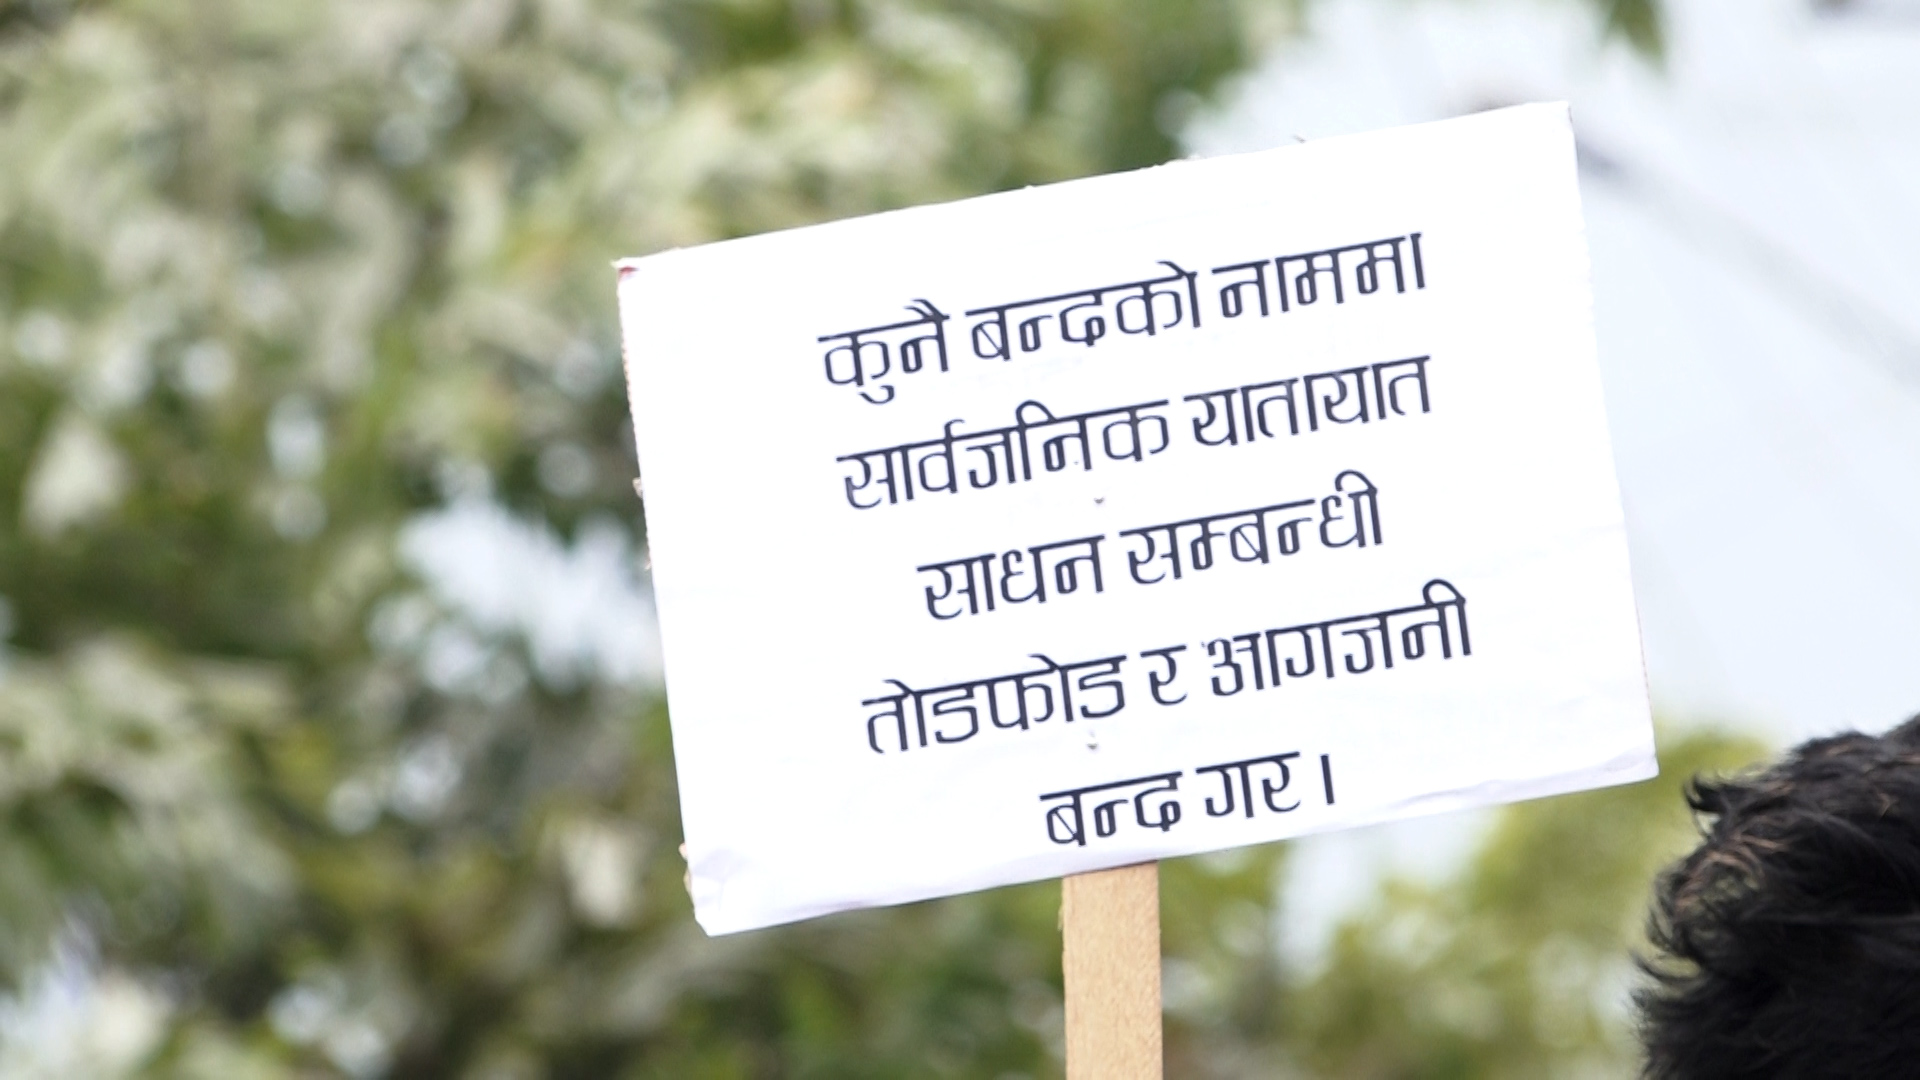 कुनै बन्दको नाममा
सार्वजनिक यातायात
साधन सम्बन्धी
तोडफोड र आगजनी
बन्द गर ।